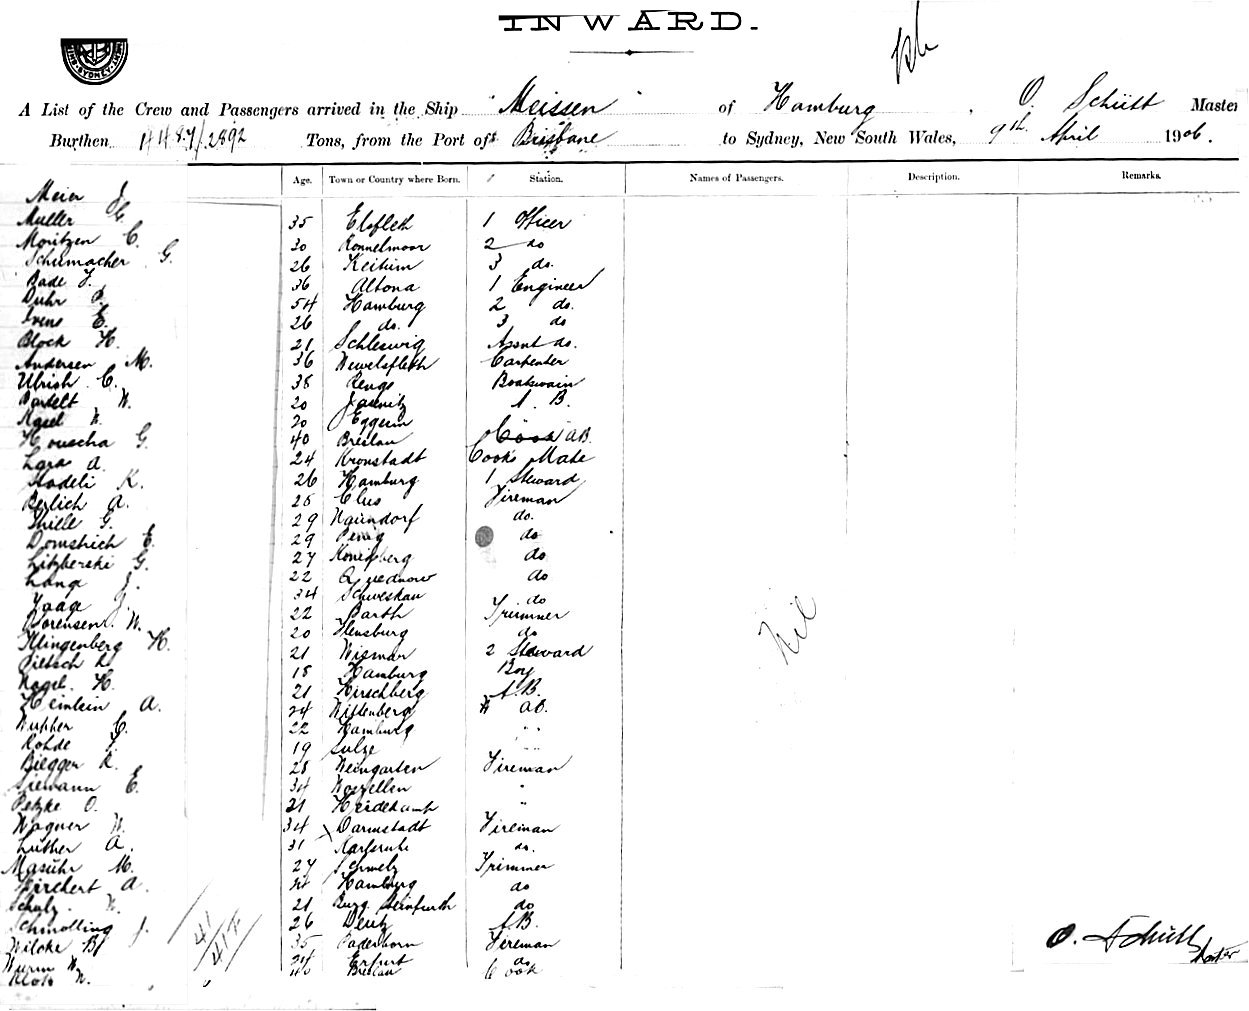 INWARD.
SYDNEY
A List of the Crew and Passengers arrived in the Ship "Meissen" of Hamburg, O. Schütt Master
Burthen 4487/2892 Tons, from the Port of Brisbane to Sydney, New South Wales, 9th April 1906.
Age. Town or Country where Born. Station. Names of Passengers. Description. Remarks.
Meier J.
Muller C.
Moritzen C.
Schumacher G.
Bade F.
Duhr P.
Ivens E.
Block H.
Andersen M.
Ulrich C.
Bartelt W.
Nagel W.
Houscha G.
Lara A.
Stadeli K.
Berlich A.
Thille G.
Domstrich E.
Litzberski G.
Lange J.
Yaage J.
Sorensen W.
Klingenberg H.
Pietsch R.
Nagel H.
Heinlein A.
Wupper C.
Rohde F.
Biegger K.
Siemann E.
Petzke O.
Wagner W.
Luther A.
Masuhr M.
Birchert A.
Schulz W.
Schmolling J.
Wilcke B.
Wurm W.
Klotz W.
35 Elsfleth 1 Officer
30 Ronnelmoor 2 do
26 Keitum 3 do.
36 Altona 1 Engineer
54 Hamburg 2 do.
26 do. 3 do
21 Schleswig Assnt do.
36 Wewelsfleth Carpenter
38 Boatswain
20 Jasnitz A. B.
20 Eggesin
40 Breslau Cook AB
24 Kronstadt Cooks Mate
26 Hamburg 1 Steward
28 Clus Fireman
29 Naundorf do.
29 Penig do
27 Konigsberg do
22 Quednow do
34 Schweskau do
22 Barth Trimmer
20 Flensburg do
21 Wismar 2 Steward
18 Hamburg Boy
21 Hirschberg A.B.
24 Wittenberg AB.
22 Hamburg " "
19 Sulze " "
28 Weingarten Fireman
34 "
21 Heidekamp "
34 Darmstadt Fireman
31 Karlsruhe do.
27 Schmelz Trimmer
Hamburg do
21 Burg Steinfurth do
26 Deutz A.B.
35 Paderborn Fireman
24 Erfurt do
40 Breslau Cook
Nil
41
O. Schütt
Master